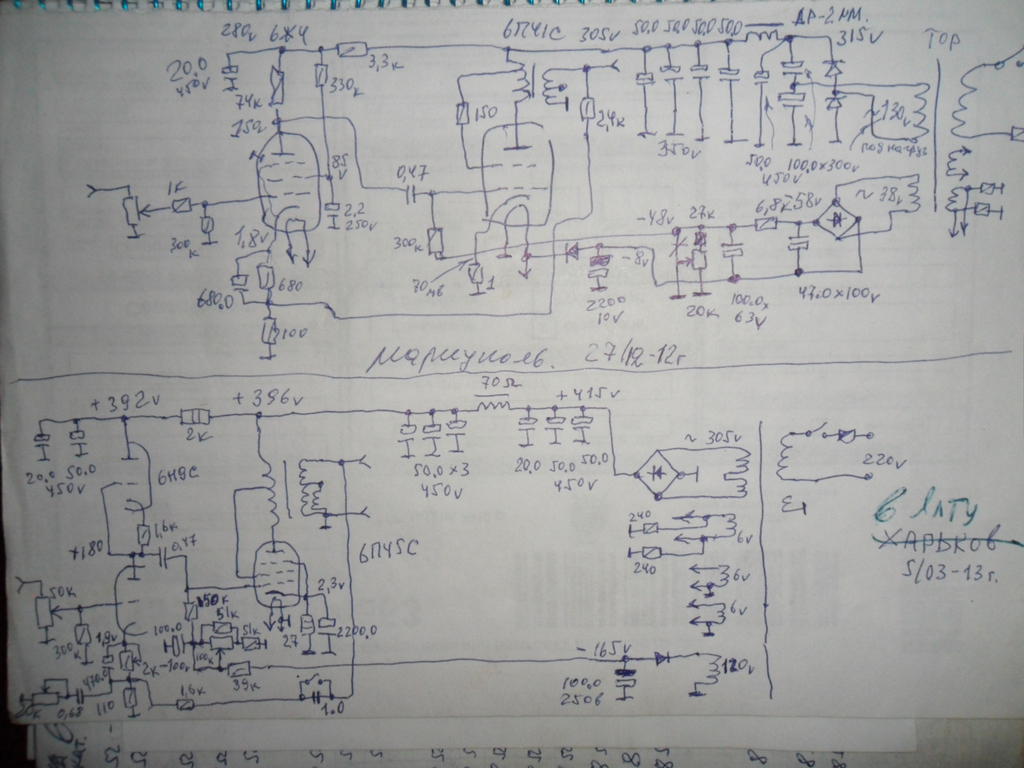 280v 6Ж4
6П41С 305v 50,0 50,0 50,0 50,0
ДР-2 мм.
315v
ТОР
20.0
450v
74к
330к
3,3к
150
2,4к
350v
50,0
450v
100.0x300v
~130v
под нагруз
150
85
v
0,47
1к
300
к
1,8v
2,2
250v
680.0
680
100
300к
70мв
1
-48v
27к
6,8к
-58v
~38v
-8v
2200
10v
20к
100.0x
63v
47.0x100v
Мариуполь. 27/12-12г
+392v
+396v
70Ω
+415v
2к
20.0 50.0
450v
6Н9С
50,0x3
450v
20.0 50.0 50.0
450v
~305v
220v
1,6к
+180
0,47
6П45С
240
240
6v
6v
6v
в Ялту
Харьков
5/03-13г.
50к
300к
1,9v
470.0
2к
-100v
100.0
150к
51к
51к
100к
39к
2,3v
27
2200,0
-165v
120v
100.0
250в
0,68
110
1,6к
1.0